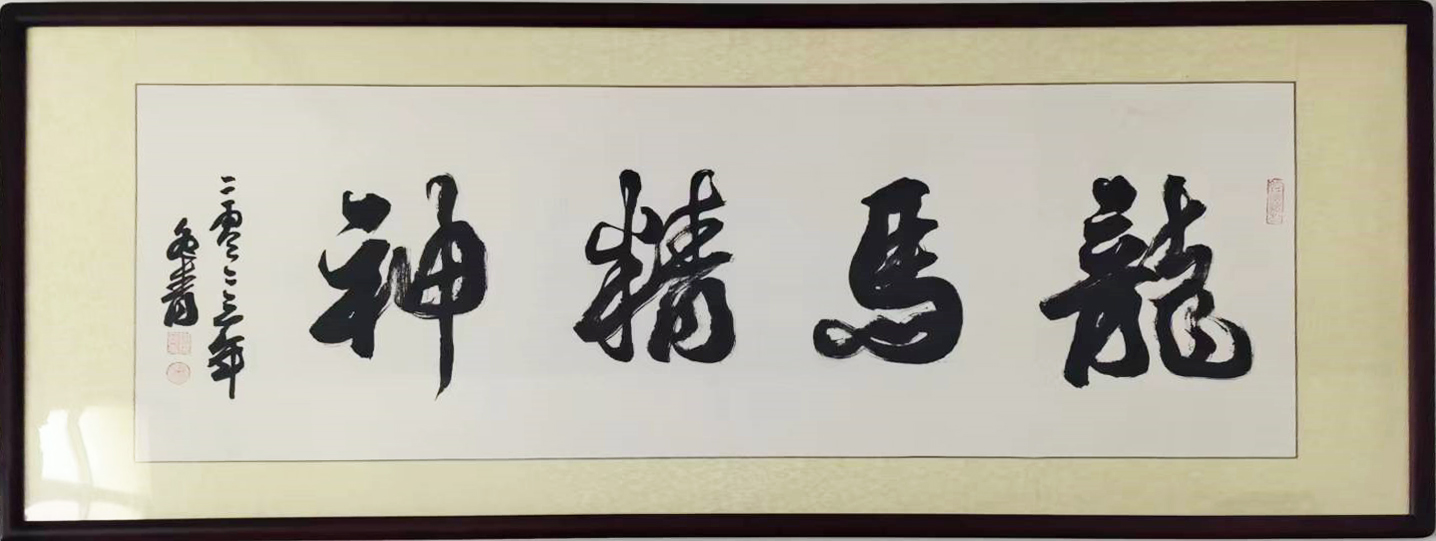 龍馬精神
二零二三年